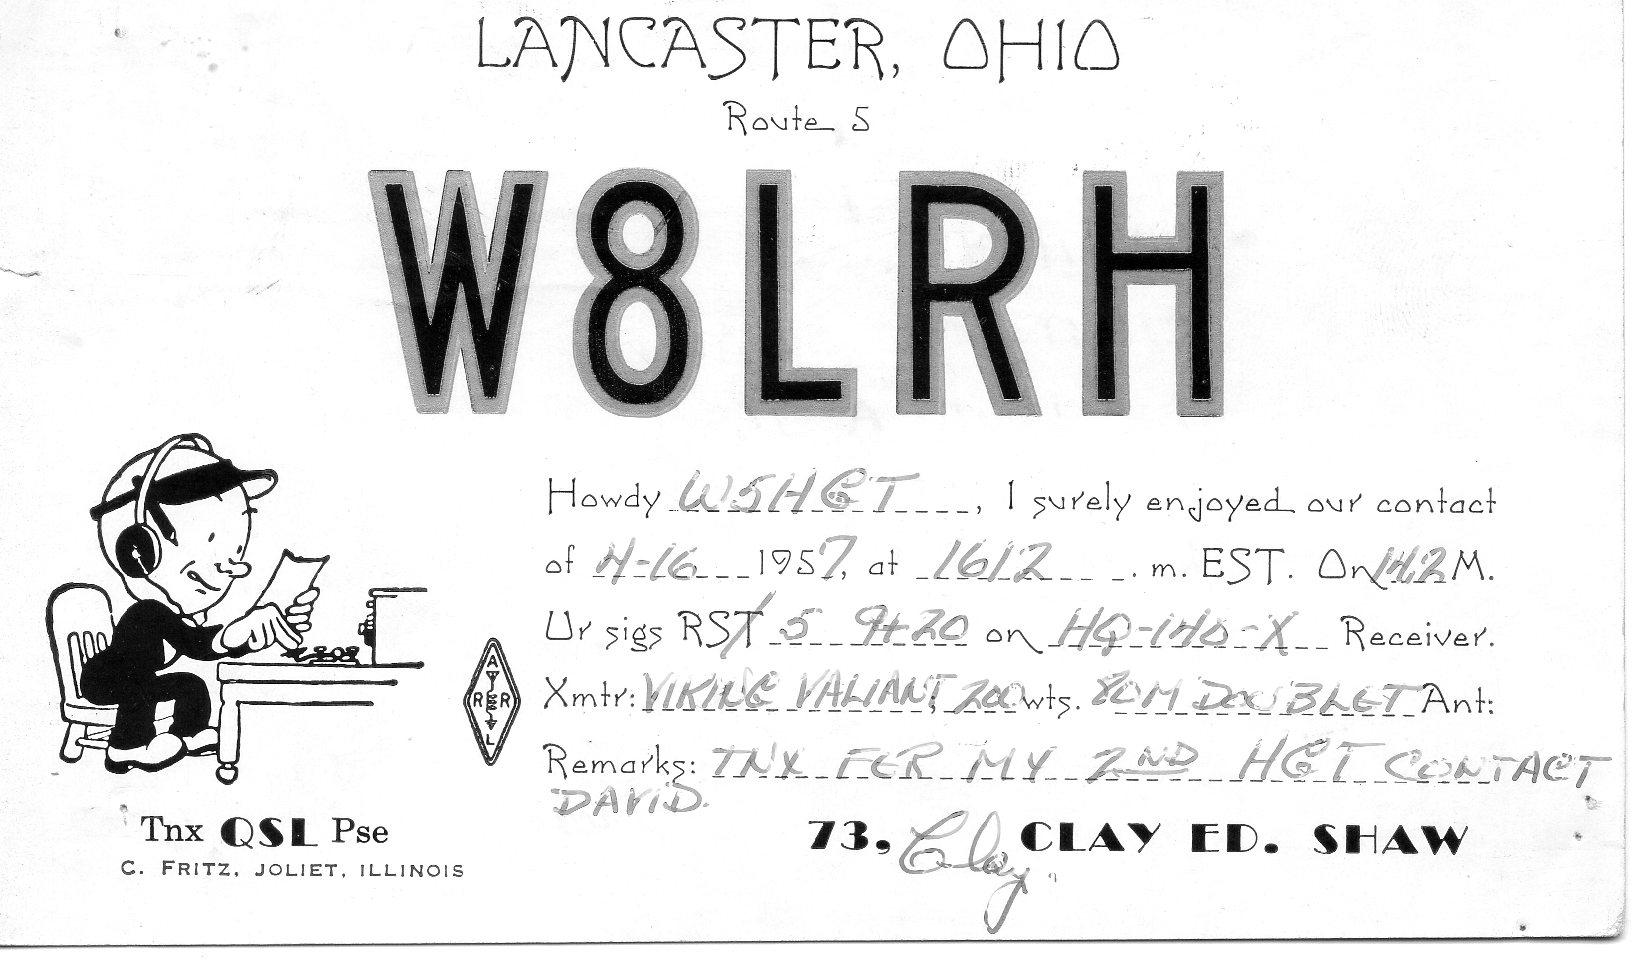 LANCASTER, OHIO
Route 5
W8LRH
Howdy W5HGT, I surely enjoyed our contact
of 4-16 1957, at 1612 . m. EST. On 14.2 M.
Ur sigs RST 5 9+20 on HQ-140-X Receiver.
Xmtr: VIKING VALIANT, 200 wts. 80M DOUBLET Ant:
Remarks: TNX FER MY 2ND HGT CONTACT
DAVID.
ARRL
Tnx QSL Pse
C. FRITZ, JOLIET, ILLINOIS
73, Clay. CLAY ED. SHAW